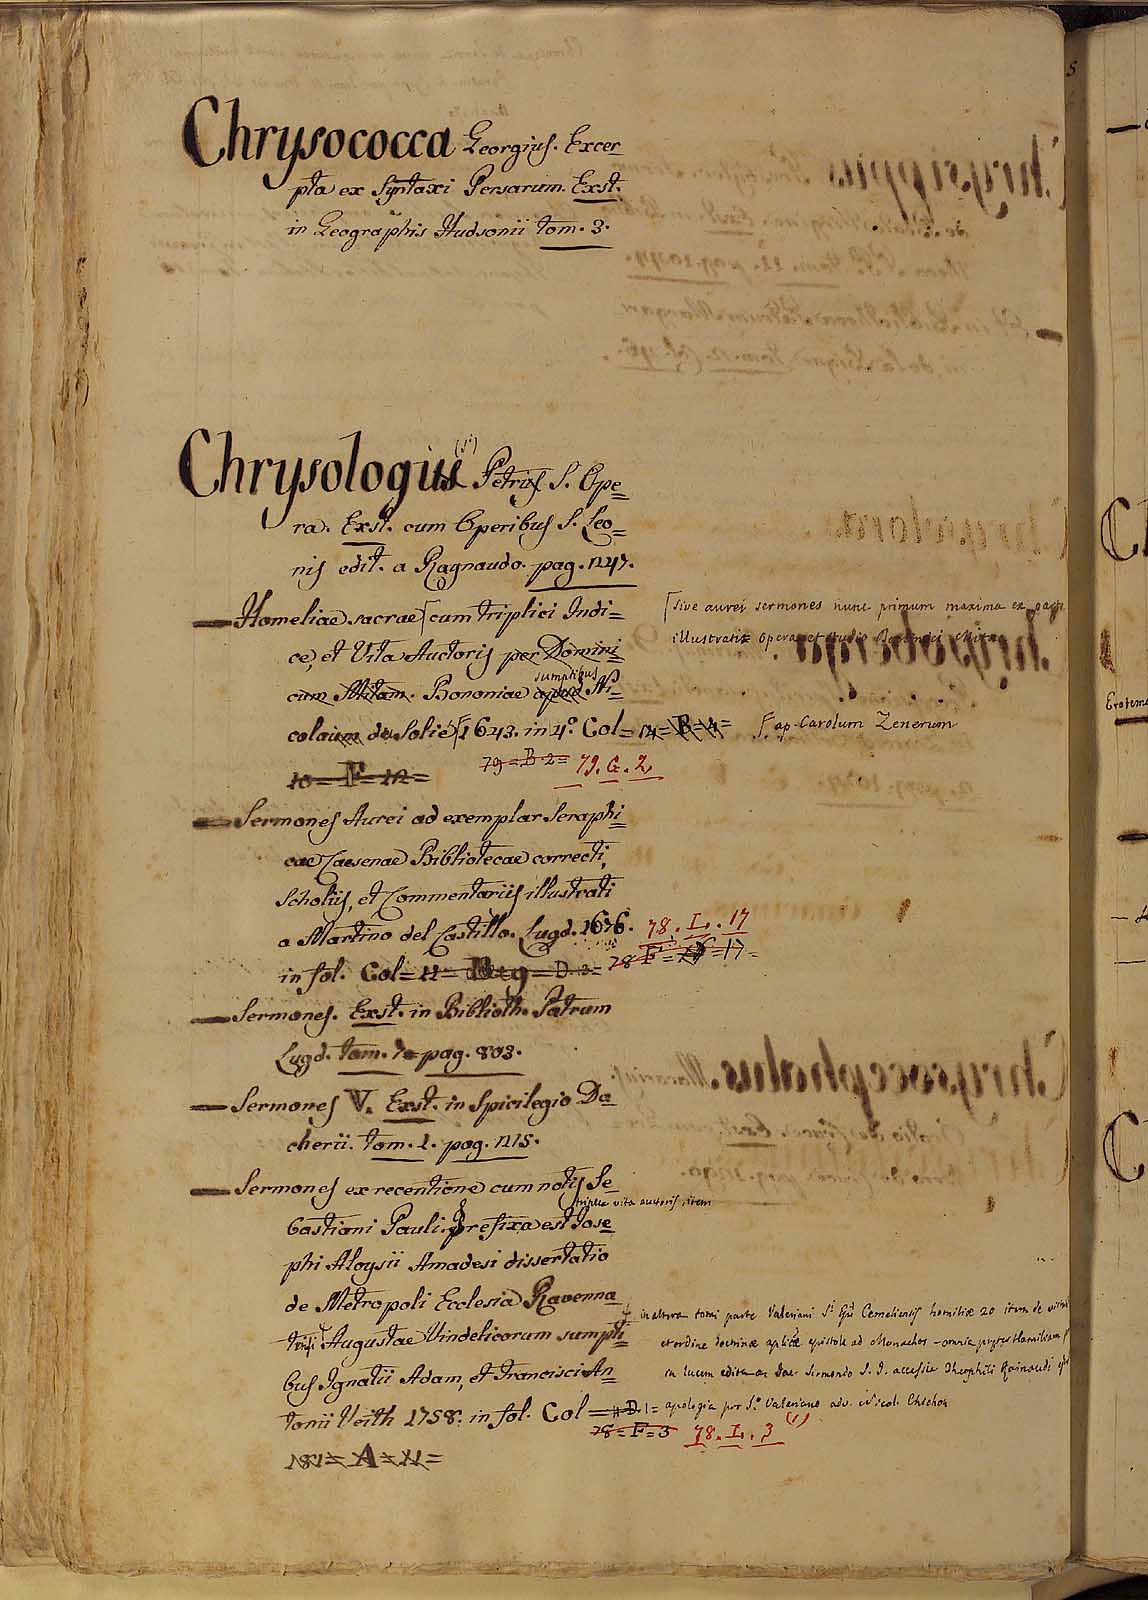 Chrysococca Georgius. Excer=
pta ex Syntaxi Persarum. Exst.
in Geographis Hudsonii tom. 3.
Chrysologus Petrus S. Ope=
ra. Exst. cum Operibus S. Leo=
nis edit. a Raynaudo. pag. 1247.
Homeliae sacrae cum triplici Indi=
ce, et Vita Auctoris per Domini=
cum Mitam. Bononiae apud Ni=
sumptibus
colaum de Solie 1643. in 4.° Col= 14= B= 4=
79= B 2= 79. G. 2
10= F= 12=
[sive aurei sermones nunc primum maxima ex parte
illustrati opera et studio
[ap. Carolum Zenerum
Sermones Aurei ad exemplar Seraphi=
cae Caesenae Bibliotecae correcti,
Scholiis, et Commentariis illustrati
a Martino del Castillo. Lugd. 1676.
in fol. Col= 11=
78. L. 17
78 F= 17=
Sermones. Exst. in Biblioth. Patrum
Lugd. tom. 7 pag. 803.
Sermones V. Exst. in Spicilegio Da=
cherii. tom. 1. pag. 1215.
Sermones ex recentione cum notis Se=
triplex vita auctoris, item
bastiani Pauli. Prefixa est Jose=
phi Aloysii Amadesi dissertatio
de Metropoli Ecclesia Ravenna=
tensi Augustae Vindelicorum sumpti=
bus Ignatii Adam, et Francisci An=
tonii Veith 1758. in fol. Col= 11= D. 1=
78= F= 3 78. L. 3 (1)
181= A= 11=
in altera tomi parte Valeriani Cemeliensis homiliae 20 item de
et ordine doctrinae epistola ad Monachos - omnia
in lucem edita a Iac. Sirmondo S. I. accessit Theophili Rainaudi
apologia pro S. Valeriano adv. Nicol.